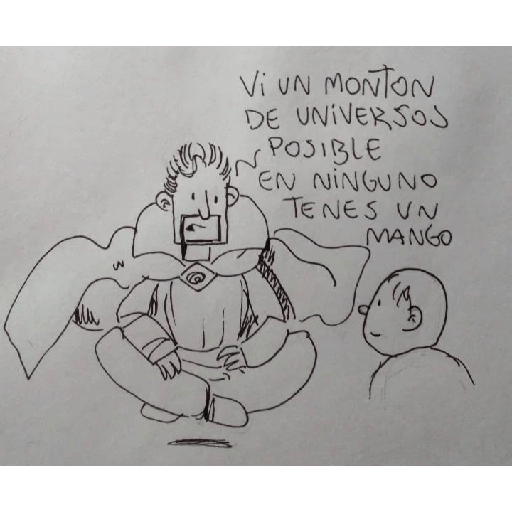 Vi UN MONTON
DE UNiVERSOS
POSIBLE
EN NiNGUNO
TENES UN
MANGO